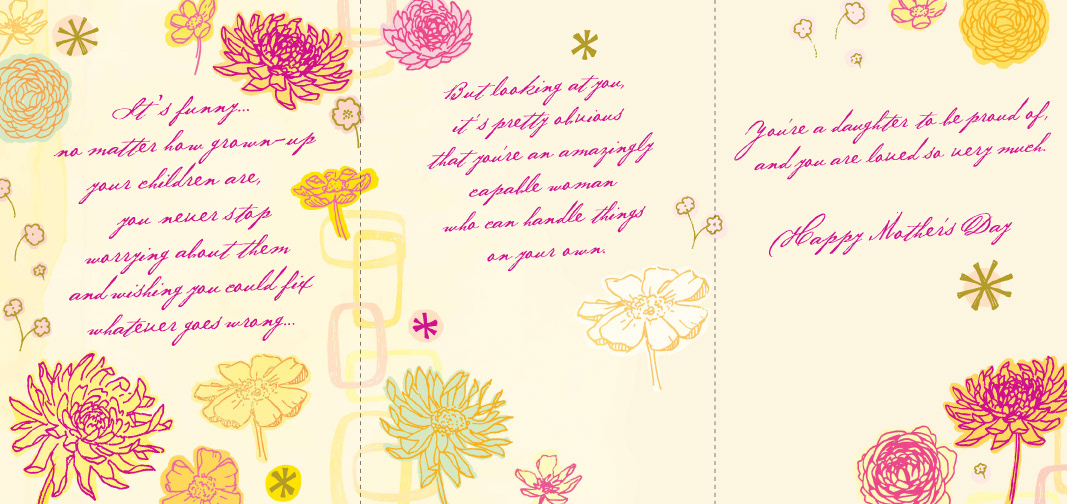 It's funny...
no matter how grown-up
your children are,
you never stop
worrying about them
and wishing you could fix
whatever goes wrong...
But looking at you,
it's pretty obvious
that you're an amazingly
capable woman
who can handle things
on your own.
You're a daughter to be proud of,
and you are loved so very much.
Happy Mother's Day